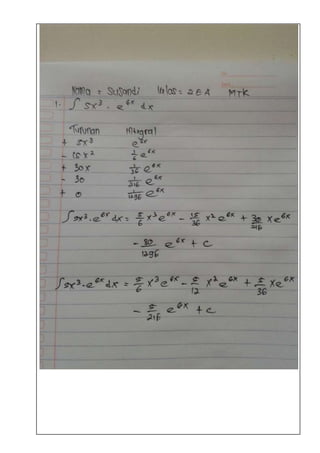 Nama = Susandi Kelas = 2EA MTK
1. ∫ 5x³ . e⁶ˣ dx
Turunan Integral
+ 5x³ e⁶ˣ
- 15x² 1/6 e⁶ˣ
+ 30x 1/36 e⁶ˣ
- 30 1/216 e⁶ˣ
+ 0 1/1296 e⁶ˣ
∫5x³.e⁶ˣ dx = 5/6 x³e⁶ˣ - 15/36 x² e⁶ˣ + 30/216 x e⁶ˣ
- 30/1296 e⁶ˣ + c
∫5x³.e⁶ˣ dx = 5/6 x³e⁶ˣ - 5/12 x² e⁶ˣ + 5/36 x e⁶ˣ
- 5/216 e⁶ˣ + c